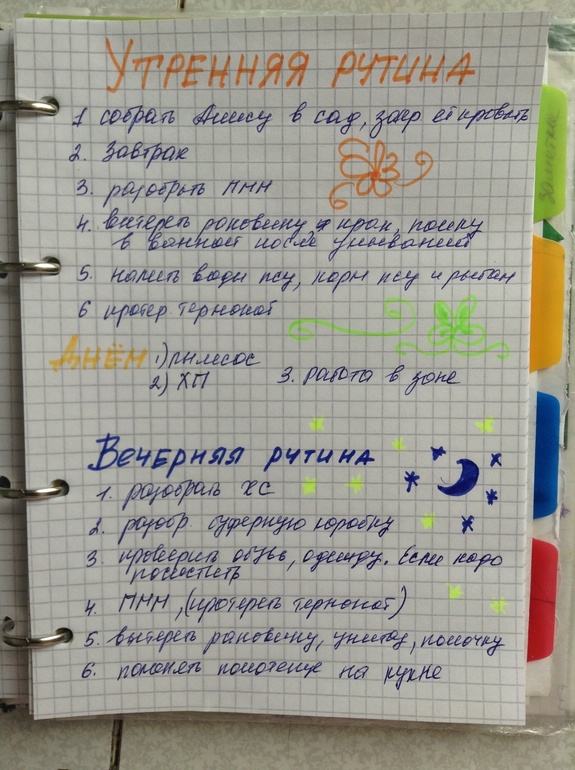 УТРЕННЯЯ РУТИНА
1 собрать Алису в сад, запр её кровать
2. Завтрак
3. разобрать ПММ
4. вытереть раковину, и кран, полку
в ванной после умываний
5. налить воды псу, корм псу и рыбам
6 протер. термопот
ДНЁМ 1) пылесос
2) ХП 3. работа в зоне
ВЕЧЕРНЯЯ РУТИНА
1. разобрать ХС
2. разобр. буферную коробку
3. проверить обувь, одежду. Если надо
почистить
4. ПММ, (протереть термопот)
5. вытереть раковину, плитку, полочку
6. поменять полотенце на кухне
заметки